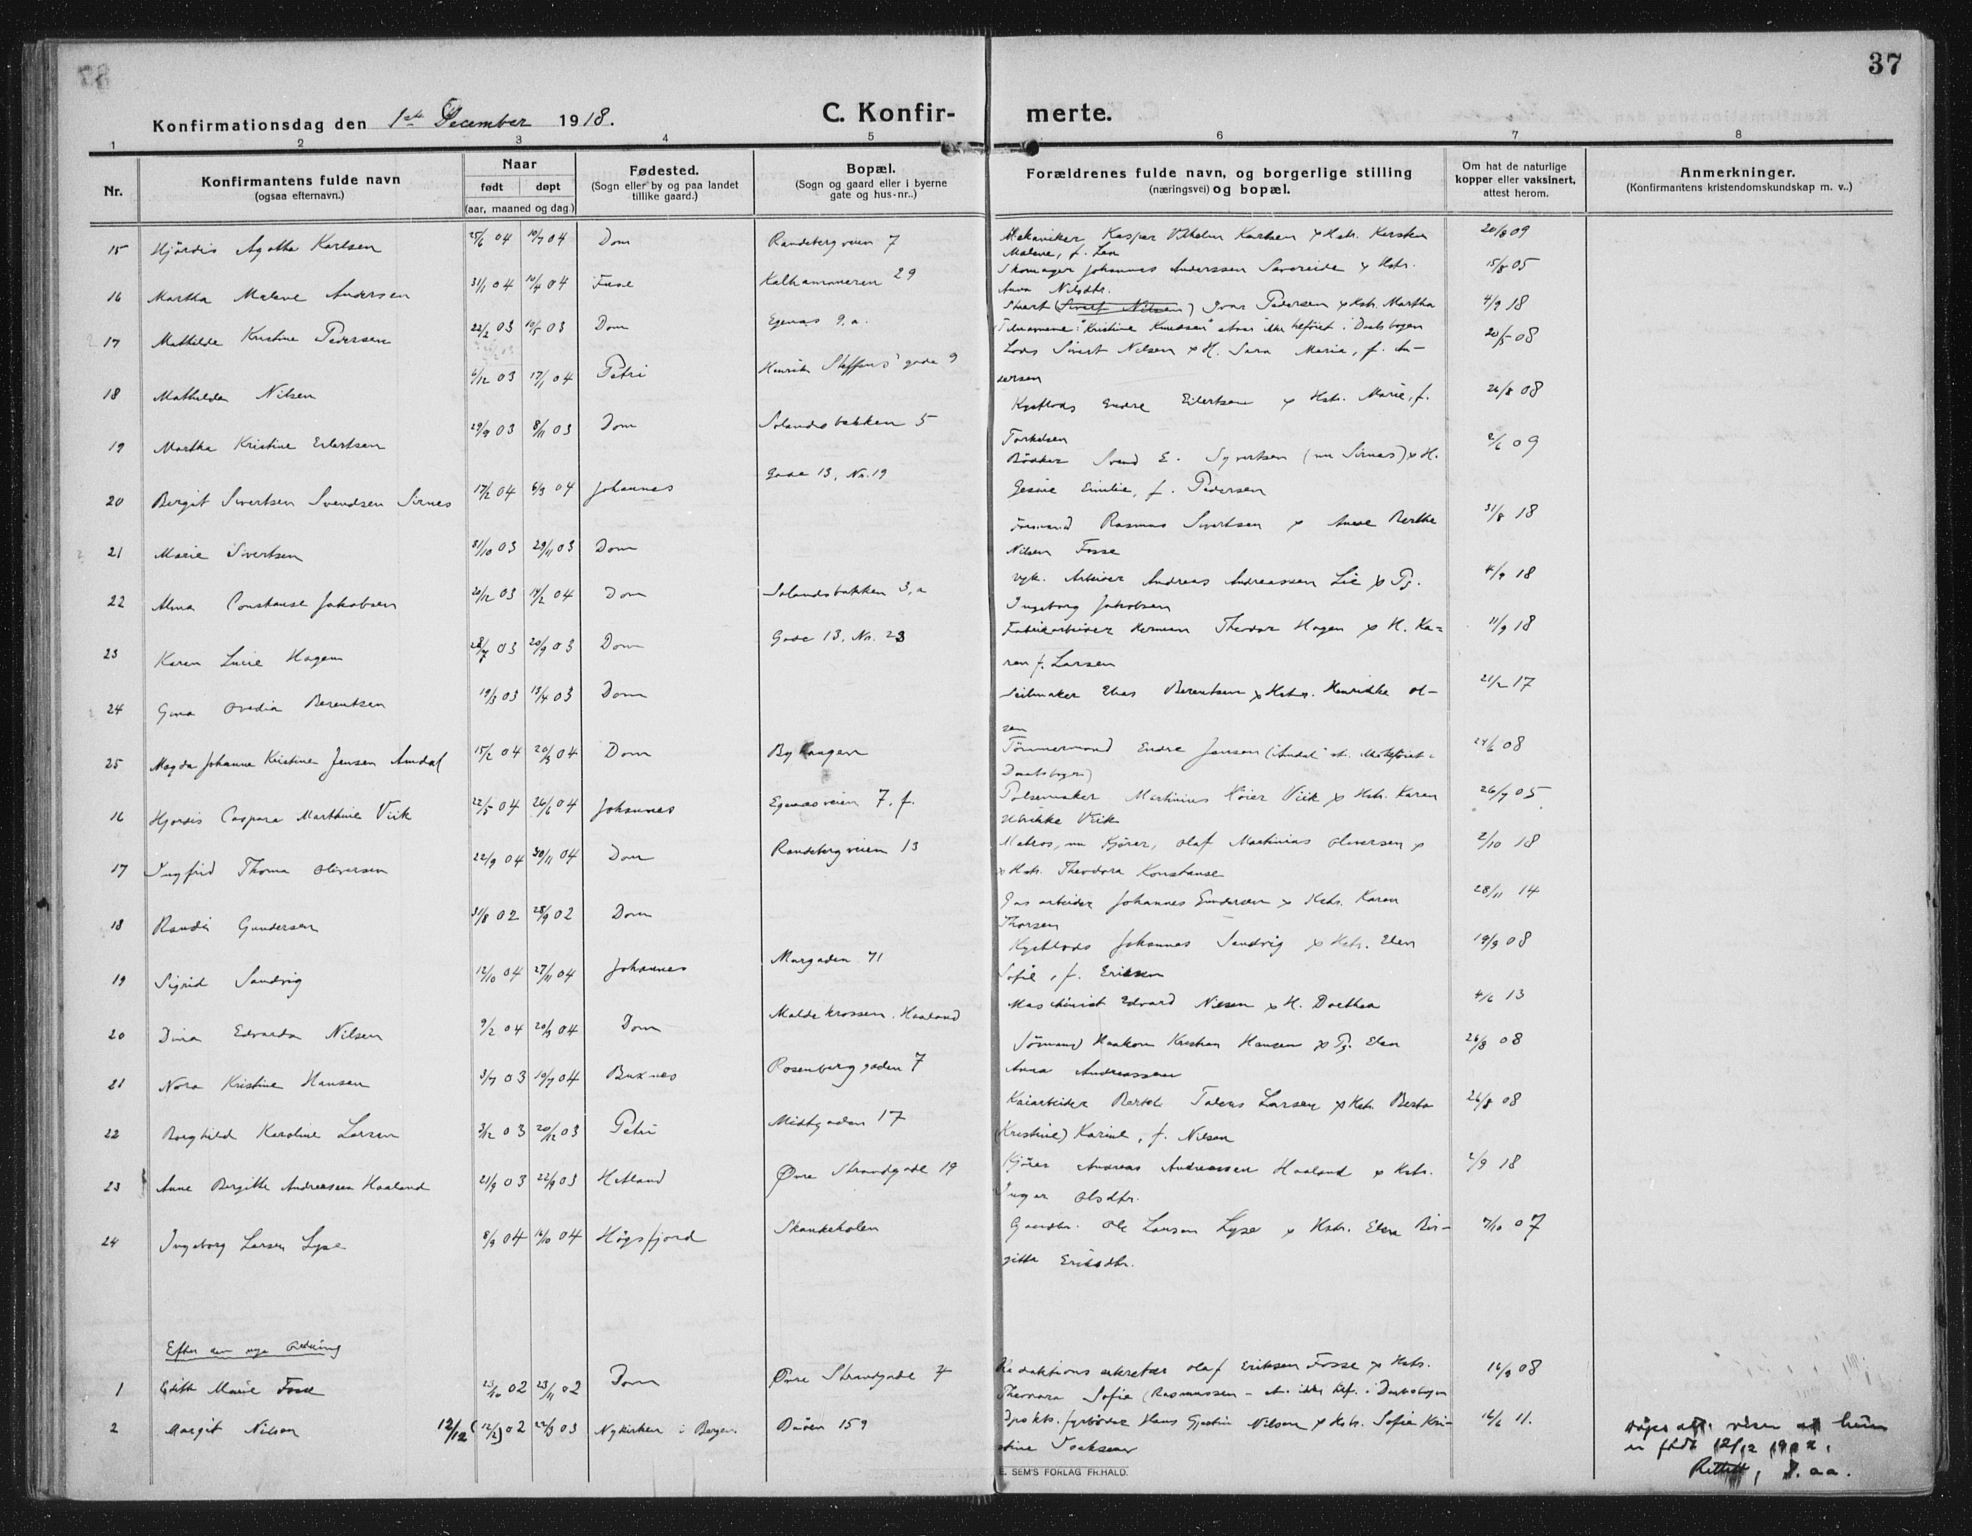 37
Konfirmationsdag den 1ste December 1918.
C. Konfirmerte.
1 2 3 4 5 6 7 8
Nr.
Konfirmantens fulde navn
(ogsaa efternavn.)
Naar
født døpt
(aar, maaned og dag.)
Fødested.
(Sogn eller by og paa landet
tillike gaard.)
Bopæl.
(Sogn og gaard eller i byerne
gate og hus-nr..)
Forældrenes fulde navn, og borgerlige stilling
(næringsvei) og bopæl.
Om hat de naturlige
kopper eller vaksinert,
attest herom.
Anmerkninger.
(Konfirmantens kristendomskundskap m. v..)
15 Hjördis Agatha Karlsen 25/6 04 10/7 04 Dom Randebergveien 7 Mekaniker Kaspar Vilhelm Karlsen x Hstr. Kirsten 20/8 09
Malene, f. Lea
16 Martha Malene Andersen 31/1 04 10/4 04 Fuse Kalhammeren 29 Skomager Johannes Anderssen Sævereide x Hstr. 15/8 05
Anna Nilsdtr.
17 Mathilde Kristine Pedersen 22/2 03 19/5 03 Dom Egenæs 9.a. (Sivert Nilsen) Ivar Pedersen x Hstr. Martha 4/9 18
"Kristine Knudsen" i Daabsbogen
18 Mathilda Nilsen 6/12 03 17/1 04 Petri Henrik Steffens' gade 9 Lods Sivert Nilsen x H. Sara Maria, f. An- 20/5 08
dersen
19 Martha Kristine Eilertsen 29/9 03 8/11 03 Dom Solandsbakken 5 Kystlods Endre Eilertsen x Hstr. Marie, f. 26/8 08
Torkelsen
20 Bergit Sivertsen Svendsen Sirnes 17/2 04 6/3 04 Johannes Gade 13, No. 19 Bödker Svend E. Syvertsen (nu Sirnes) x H. 2/6 09
Gesine Emilie, f. Pedersen
21 Marie Sivertsen 31/10 03 29/11 03 Dom Rasmus Sivertsen x Anne Berthe 31/8 18
Nilsen Fosse
22 Alma Constanse Jakobsen 20/12 03 14/2 04 Dom Solandsbakken 3,a Arbeider Andreas Andreassen Lie x Pg. 4/9 18
Ingeborg Jakobsen
23 Karen Lucie Hagen 28/7 03 20/9 03 Dom Gade 13, No. 23 Fabrikarbeider Herman Theodor Hagen x H. Ka- 11/9 18
ren f. Larsen
24 Gina Ovedia Berentsen 19/3 03 13/4 03 Dom Seilmaker Elias Berentsen x Hstr. Henrikke Ol- 21/2 17
sen
25 Magda Johanne Kristine Jensen Amdal 15/2 04 20/3 04 Dom Byhaugen Tömmermand Endre Jensen ("Amdal" 24/6 08
Daabsbogen)
16 Hjördis Caspara Marthine Viik 22/5 04 26/6 04 Johannes Egenæsveien 7.f. Pølsemaker Martinius Höier Viik x Hstr. Karen 26/9 05
Ulrikke Viik
17 Ingfrid Thoma Oliversen 22/9 04 30/11 04 Dom Randebergveien 13 Matros, nu Kjører, Olaf Martinius Oliversen x 2/10 18
x Hstr. Theodora Konstanse
18 Randi Gundersen 31/8 02 28/9 02 Dom Gasarbeider Johannes Gundersen x Hstr. Karen 28/11 14
Thorsen
19 Sigrid Sandvig 12/10 04 27/11 04 Johannes Murgaden 71 Kystlods Johannes Sandvig x Hstr. Elen 19/9 08
Sofie, f. Eriksen
20 Dina Edvarda Nilsen 9/2 04 20/3 04 Dom Maldekrossen, Haaland Maskinist Edvard Nilsen x H. Dorthea 4/6 13
21 Nora Kristine Hansen 3/7 03 19/7 04 Buxnes Rosenberggaden 7 Sömand Haakon Kristian Hansen x Pg. Elen 26/8 08
Anna Andreassen
22 Borghild Karoline Larsen 3/12 03 20/12 03 Petri Midtgaden 17 Kaiarbeider Bertel Tobias Larsen x Hstr. Berta 26/8 08
(Kristine) Karine, f. Nilsen
23 Anne Bergitte Andreassen Haaland 21/9 03 22/9 03 Hetland Øvre Strandgade 19 Kjører Andreas Andreassen Haaland x Hstr. 2/9 18
Inger Olsdtr.
24 Ingeborg Larsen Lyse 8/9 04 16/10 04 Högsfjord Skankeholen Gaardbr. Ole Larsen Lyse x Hstr. Elen Bir- 7/10 07
gitta Eriksdtr.
Efter den nye Ordning
1 Edith Marie Fosse 23/10 02 23/11 02 Dom Øvre Strandgade 4 Redaktionssekretær Olaf Eriksen Fosse x Hstr. 16/9 08
Theodora Sofie (Rasmussen - i Daabsbogen
2 Margit Nilsen 12/12 (12/2) 02 22/3 03 Nykirken i Bergen Buöen 159 fyrböder Hans Gjertin Nilsen x Hstr. Sofie Kri- 16/6 11.
stine Isaksen
Døpsatt. viser at hun
er født 12/12 1902.
Rettett,
E. SEM'S FORLAG FR.HALD.